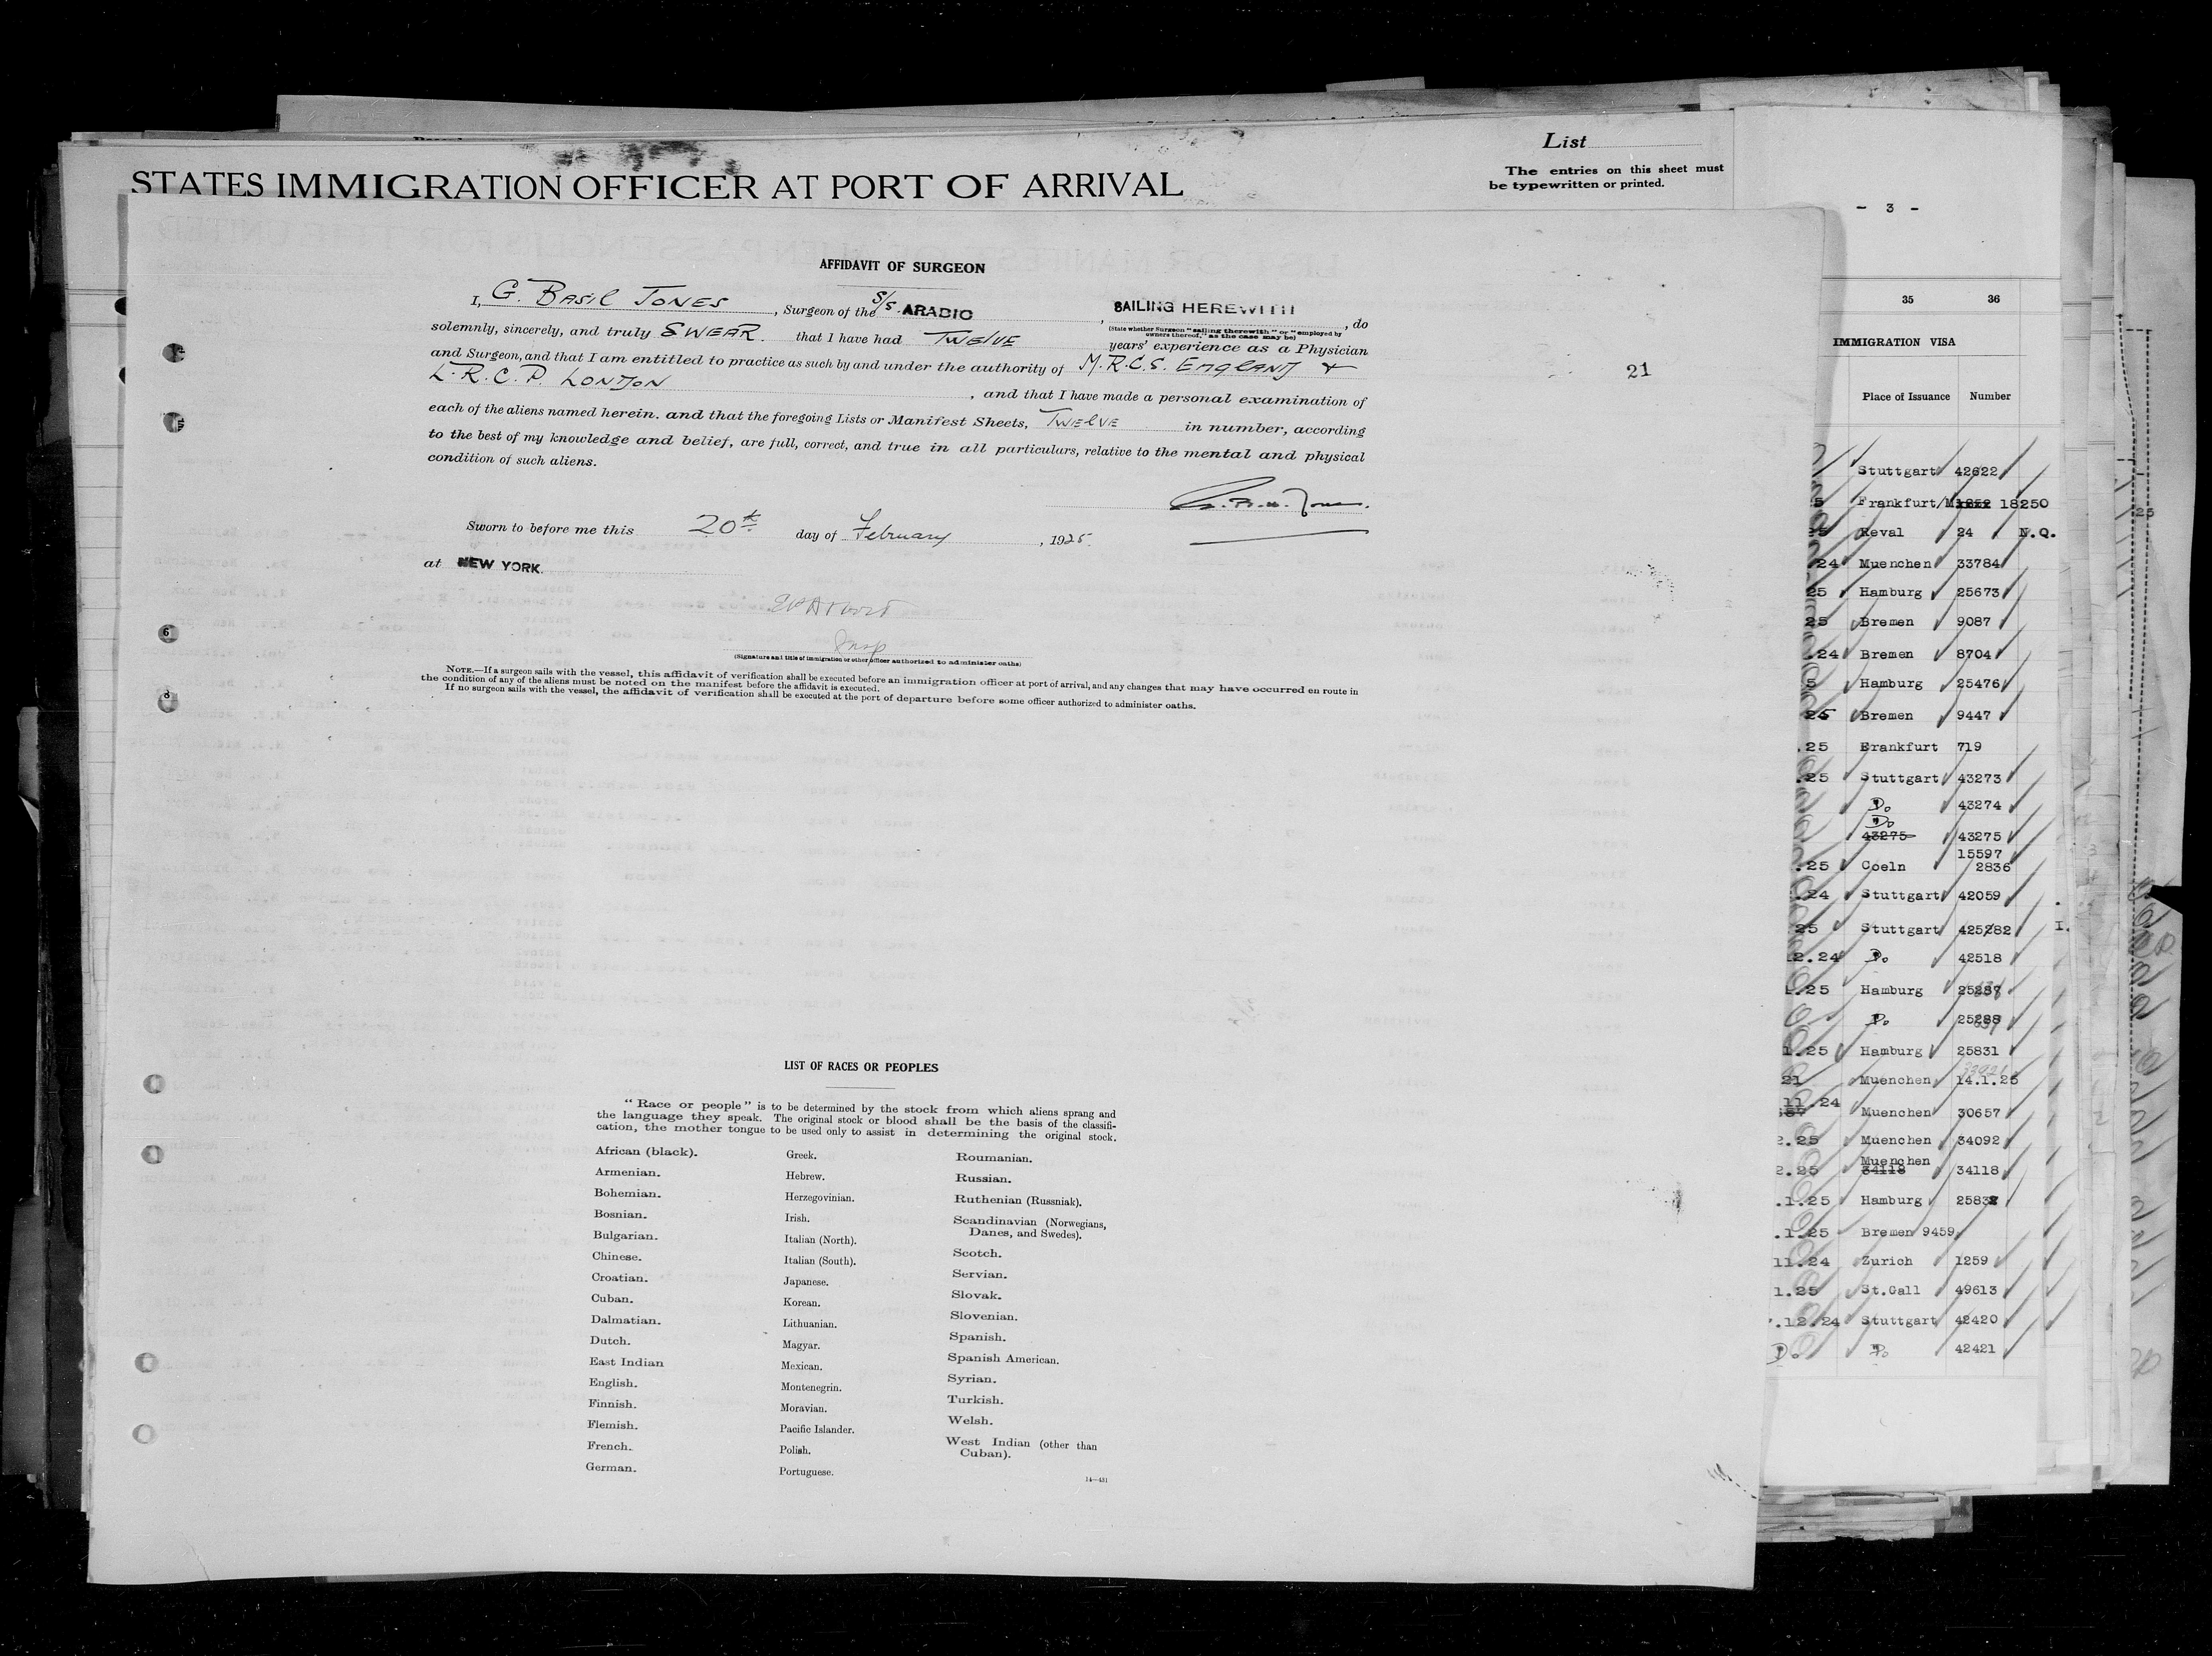 List
The entries on this sheet must
be typewritten or printed.
STATES IMMIGRATION OFFICER AT PORT OF ARRIVAL
- 3 -
AFFIDAVIT OF SURGEON
I, G. BASIL JONES, Surgeon of the S/S. ARABIC, SAILING HEREWITH, do
(State whether Surgeon "sailing therewith" or "employed by
owners thereof," as the case may be)
solemnly, sincerely, and truly SWEAR. that I have had TWELVE years' experience as a Physician
and Surgeon, and that I am entitled to practice as such by and under the authority of M.R.C.S. ENGLAND &
L.R.C.P. LONDON, and that I have made a personal examination of
each of the aliens named herein. and that the foregoing Lists or Manifest Sheets, TWELVE in number, according
to the best of my knowledge and belief, are full, correct, and true in all particulars, relative to the mental and physical
condition of such aliens.
21
Sworn to before me this 20th day of February, 1925.
at NEW YORK.
Insp
(Signature and title of immigration or other officer authorized to administer oaths)
NOTE.—If a surgeon sails with the vessel, this affidavit of verification shall be executed before an immigration officer at port of arrival, and any changes that may have occurred en route in
the condition of any of the aliens must be noted on the manifest before the affidavit is executed.
If no surgeon sails with the vessel, the affidavit of verification shall be executed at the port of departure before some officer authorized to administer oaths.
LIST OF RACES OR PEOPLES
"Race or people" is to be determined by the stock from which aliens sprang and
the language they speak. The original stock or blood shall be the basis of the classifi-
cation, the mother tongue to be used only to assist in determining the original stock.
African (black).
Armenian.
Bohemian.
Bosnian.
Bulgarian.
Chinese.
Croatian.
Cuban.
Dalmatian.
Dutch.
East Indian
English.
Finnish.
Flemish.
French.
German.
Greek.
Hebrew.
Herzegovinian.
Irish.
Italian (North).
Italian (South).
Japanese.
Korean.
Lithuanian.
Magyar.
Mexican.
Montenegrin.
Moravian.
Pacific Islander.
Polish.
Portuguese.
Roumanian.
Russian.
Ruthenian (Russniak).
Scandinavian (Norwegians,
Danes, and Swedes).
Scotch.
Servian.
Slovak.
Slovenian.
Spanish.
Spanish American.
Syrian.
Turkish.
Welsh.
West Indian (other than
Cuban).
14—431
35 36
IMMIGRATION VISA
Place of Issuance Number
Stuttgart 42622
5 Frankfurt/M 18250
25 Reval 24 N.Q.
.24 Muenchen 33784
25 Hamburg 25673
25 Bremen 9087
.24 Bremen 8704
5 Hamburg 25476
25 Bremen 9447
.25 Frankfurt 719
.25 Stuttgart 43273
Do 43274
Do
43275 43275
15597
.25 Coeln 2836
.24 Stuttgart 42059
25 Stuttgart 425282 I.
2.24 Do 42518
.25 Hamburg 25287
Do 25288
1.25 Hamburg 25831
21 Muenchen 14.1.25
11.24 Muenchen 30657
2.25 Muenchen 34092
Muenchen
2.25 34118 34118
.1.25 Hamburg 25832
.1.25 Bremen 9459
11.24 Zurich 1259
1.25 St.Gall 49613
.12.24 Stuttgart 42420
Do. Do 42421